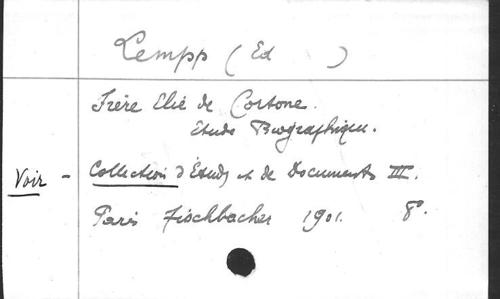 Lempp (Ed )
Frère Elie de Cortone.
Etude Biographique.
Voir - Collection d'Etudes et de Documents III.
Paris Fischbacher 1901. 8°.